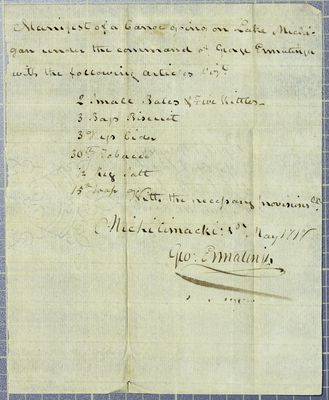 Manifest of a Canoe going on Lake Michi-
gan under the command of George Ermatinger
with the following articles Vizt.
2 Small Bales & Five Kittles
3 Bags Biscuit
3 Kegs
30lb Tobacco
½ Keg Salt
15lb Soap With the necessary provisions &c.
Michilimackc. May
Geo: Ermatinger